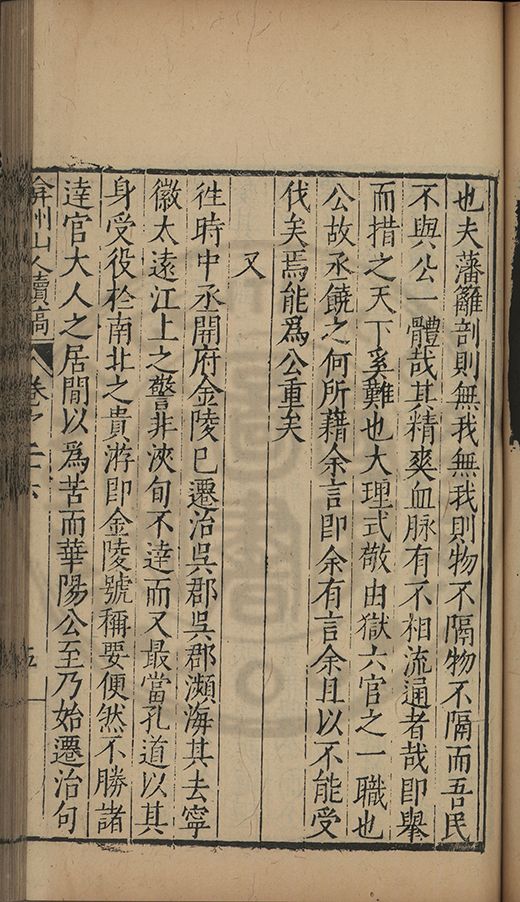 也夫藩籬剖則無我無我則物不隔物不隔而吾民
不與公一體哉其精爽血脉有不相流通者哉即舉
而措之天下奚難也大理式敬由獄六官之一職也
公故丞饒之何所藉余言即余有言余且以不能受
伐矣焉能爲公重矣
又
徃時中丞開府金陵巳遷治吳郡吳郡瀕海其去寧
徽太遠江上之警非浹旬不達而又最當孔道以其
身受役於南北之貴游即金陵號稱要便然不勝諸
達官大人之居間以爲苦而華陽公至乃始遷治句
弇州山人續稿 卷之二十六 五